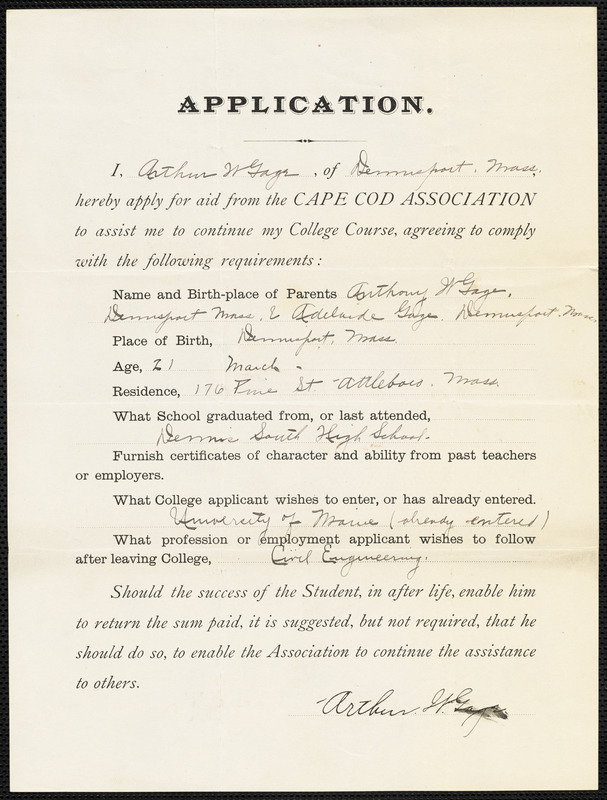 APPLICATION.
I, Arthur W Gage, of Dennisport, Mass.
hereby apply for aid from the CAPE COD ASSOCIATION
to assist me to continue my College Course, agreeing to comply
with the following requirements:
Name and Birth-place of Parents Anthony W Gage,
Dennisport Mass, & Adelaide Gage, Dennisport, Mass,
Place of Birth, Dennisport, Mass.
Age, 21 March -
Residence, 176 Pine St - Attleboro. Mass.
What School graduated from, or last attended,
Dennis South High School.
Furnish certificates of character and ability from past teachers
or employers.
What College applicant wishes to enter, or has already entered.
University of Maine (already entered)
What profession or employment applicant wishes to follow
after leaving College, Civil Engineering.
Should the success of the Student, in after life, enable him
to return the sum paid, it is suggested, but not required, that he
should do so, to enable the Association to continue the assistance
to others.
Arthur. W. Gage